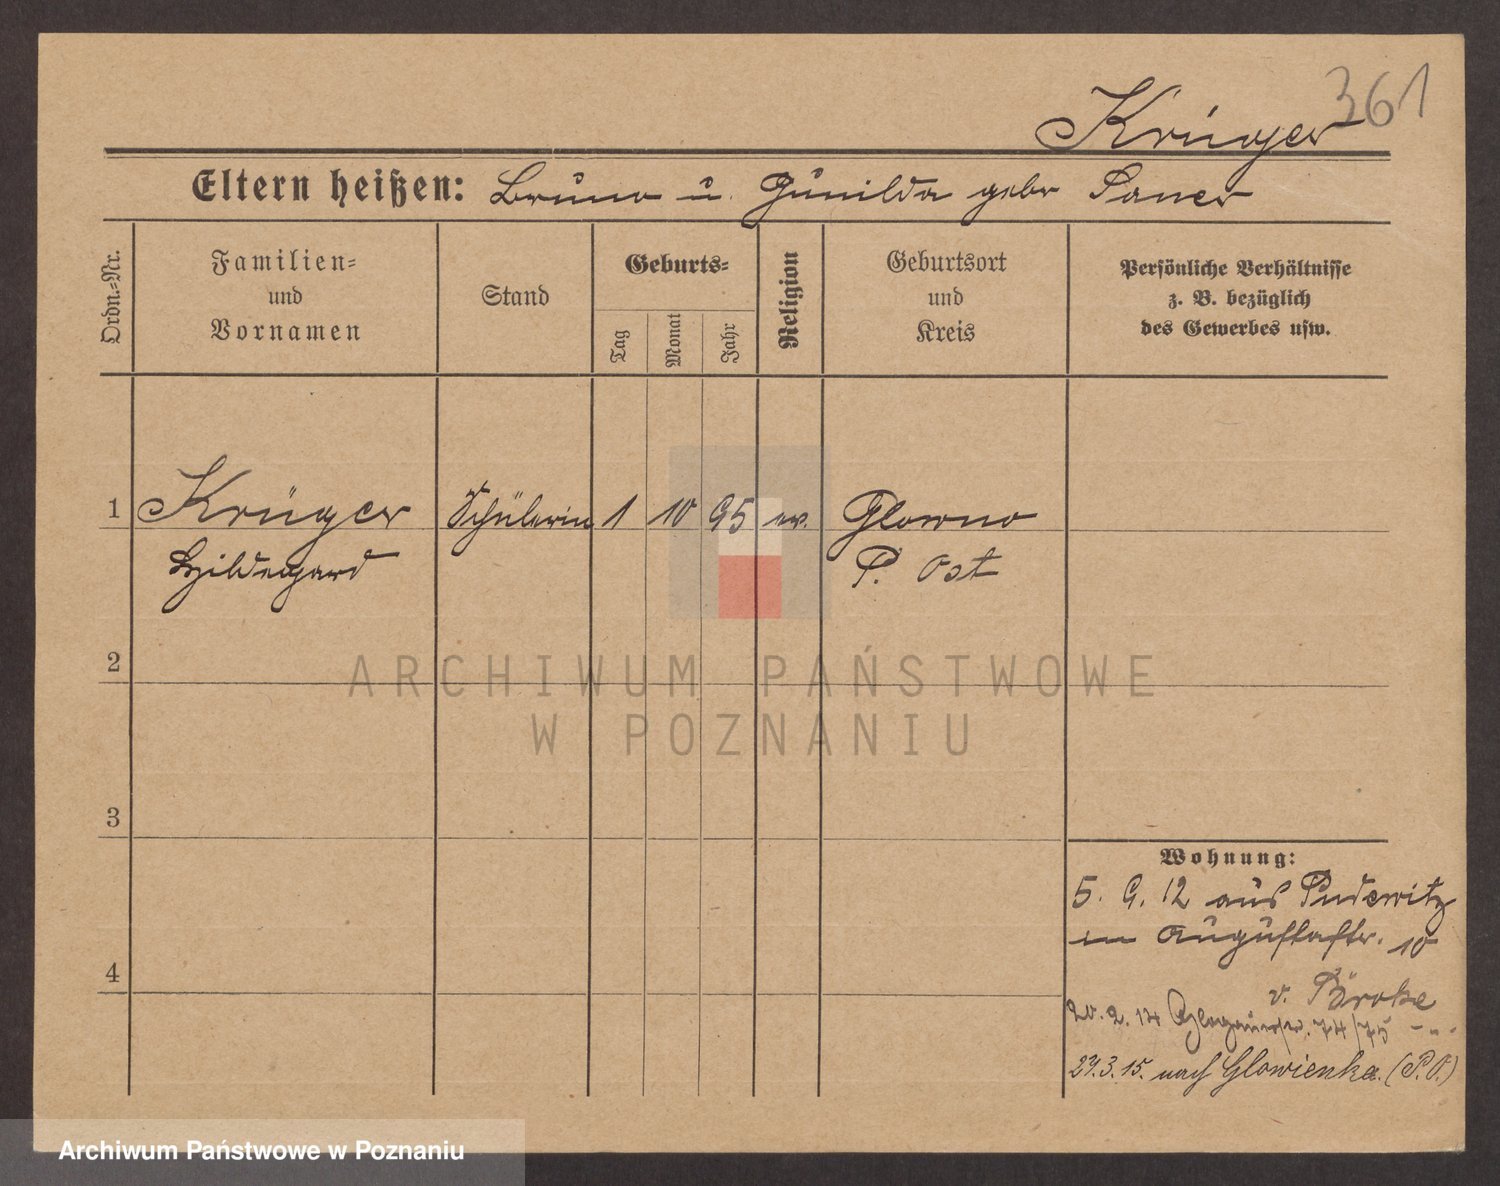 361
Krüger
Eltern heißen: Bruno u. Gunilda gebr Sauer
Ordn.-Nr.
Familien-
und
Vornamen
Stand
Geburts-
Tag
Monat
Jahr
Religion
Geburtsort
und
Kreis
Persönliche Verhältnisse
z. B. bezüglich
des Gewerbes usw.
1 Krüger Schülerin 1 10 95 ev. Glowno
Hildegard P. Ost
2
3
4
Wohnung:
5. 9. 12 aus Pudewitz
Augustastr. 10
v.
20. 2. 14 Glogauerstr. 74/75 - " -
27. 3. 15. nach Glowienka. (P. O.)
ARCHIWUM PAŃSTWOWE
W POZNANIU
Archiwum Państwowe w Poznaniu